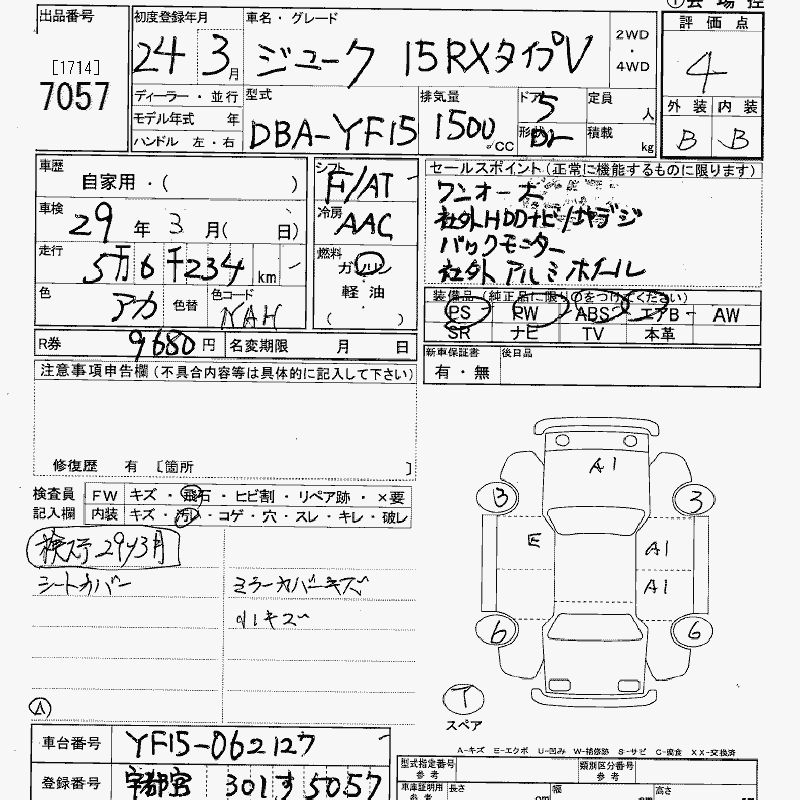 出品番号
[1714]
7057
初度登録年月
24 3月
車名・グレード
ジューク 15RXタイプV
2WD
・
4WD
評価点
4
外装 内装
B B
ディーラー・並行
モデル年式 年
ハンドル 左・右
型式
DBA-YF15
排気量
1500 cc
ドア 5
形状
定員 人
積載 kg
車歴
自家用・( )
車検
29年 3月( 日)
走行
5万6千234 km
色
アカ 色替
色コード
NAH
シフト
F/AT
冷房
AAC
燃料
ガソリン
軽・油
( )
セールスポイント(正常に機能するものに限ります)
ワンオーナー
社外HDDナビ/地デジ
バックモニター
社外アルミホイール
装備品(純正品に限り○をつけてください)
PS PW ABS エアB AW
SR ナビ TV 本革
R券 9680円 名変期限 月 日
新車保証書
有・無
後日品
注意事項申告欄(不具合内容等は具体的に記入して下さい)
修復歴 有 [箇所 ]
検査員
記入欄
FW キズ・飛石・ヒビ割・リペア跡・×要
内装 キズ・汚レ・コゲ・穴・スレ・キレ・破レ
検ステ29y3月
シートカバー ミラーカバーキズ
A1
3 3
E A1
A1
6 6
T
スペア
A
A-キズ E-エクボ U-凹み W-補修跡 S-サビ C-腐食 XX-交換済
車台番号 YF15-062127
登録番号 宇都宮 301 す 5057
型式指定番号
参考
類別区分番号
参考
車庫証明用
参考
長さ cm
幅 cm
高さ